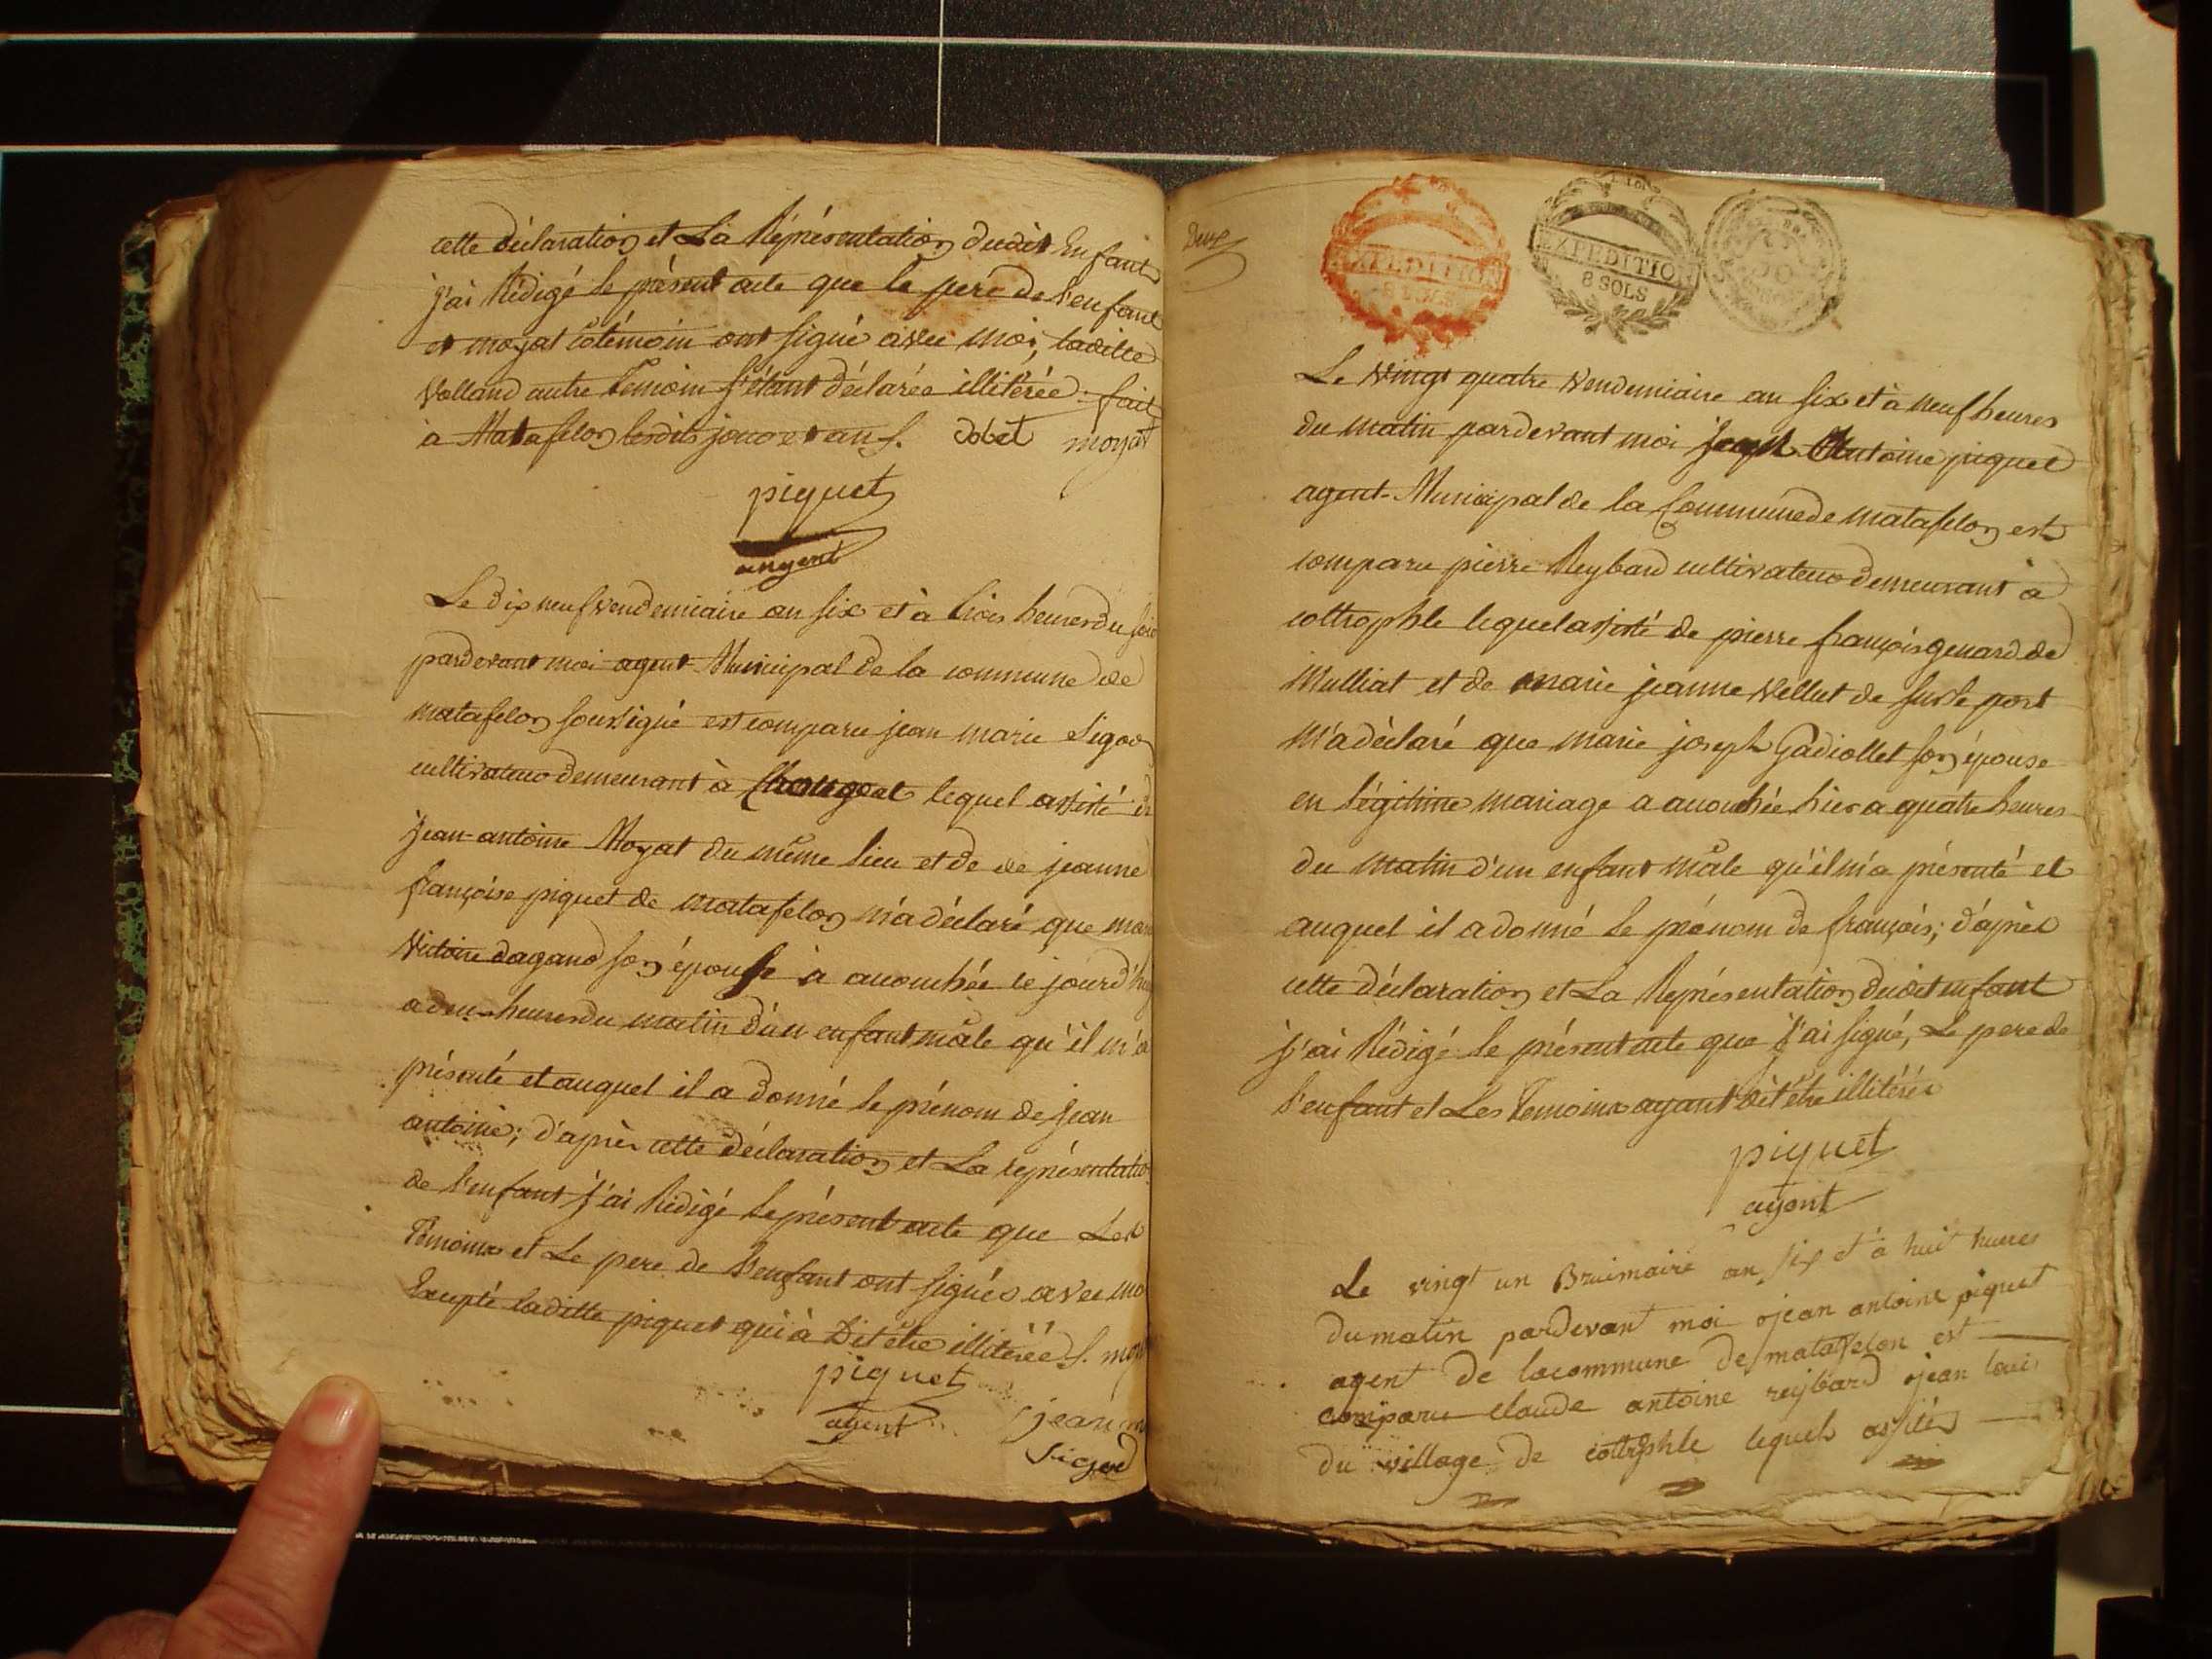 cette déclaration et La Réprésentation dudit Enfant
j'ai Rédigé le présent acte que le pere de l'enfant
et moyat témoin ont signé avec moi, laditte
Volland autre Temoin s'étant déclarée illitérée. fait
à Matafelon lesdits jour et an s. dobet moyat
piquet
angent
Le dix neuf vendemiaire an six et à trois heures du soir
pardevant moi agent Municipal de la commune de
matafelon soussigné est comparu jean marie Sigod
cultivateur demeurant à Chougeat lequel assisté de
jean-antoine Moyat du même lieu et de de jeanne
françoise piquet de matafelon m'a déclaré que marie
Victoire dagand son épouse à accouchée ce jourd'huy
a deux heures du matin d'un enfant mâle qu'il m'a
présenté et auquel il a donné le prénom de jean
antoine; d'après cette déclaration et La représentation
de l'enfant j'ai Rédigé le présent acte que Les
Témoins et Le pere de l'enfant ont signés avec moi
Excepté laditte piquet qui à Dit être illitérée. s. moyat
piquet
agent
jean m
sigod
Deux
EXPEDITION
8 SOLS
EXPEDITION
8 SOLS
Le vingt quatre vendemiaire an six et à neuf heures
du matin pardevant moi jean Antoine piquet
agent Municipal de la Commune de matafelon est
comparu pierre Reybard cultivateur demeurant à
coltrophle lequel assisté de pierre françois genard de
Mulliat et de marie jeanne Vellut de sur le port
M'a déclaré que marie joseph Gadiollet son épouse
en légitime mariage a accouchée hier a quatre heures
du matin d'un enfant mâle qu'il m'a présenté et
auquel il a donné le prénom de françois; d'après
cette déclaration et La Représentation dudit enfant
j'ai Rédigé le présent acte que j'ai signé, Le pere de
l'enfant et Les Temoins ayant dit être illitérés
piquet
agent
Le vingt un Bruimaire an six et à huit hueres
du matin pardevant moi jean antoine piquet
agent de la commune de matafelon est
comparu claude antoine reybard jean louis
du village de coltrophle lequels assités